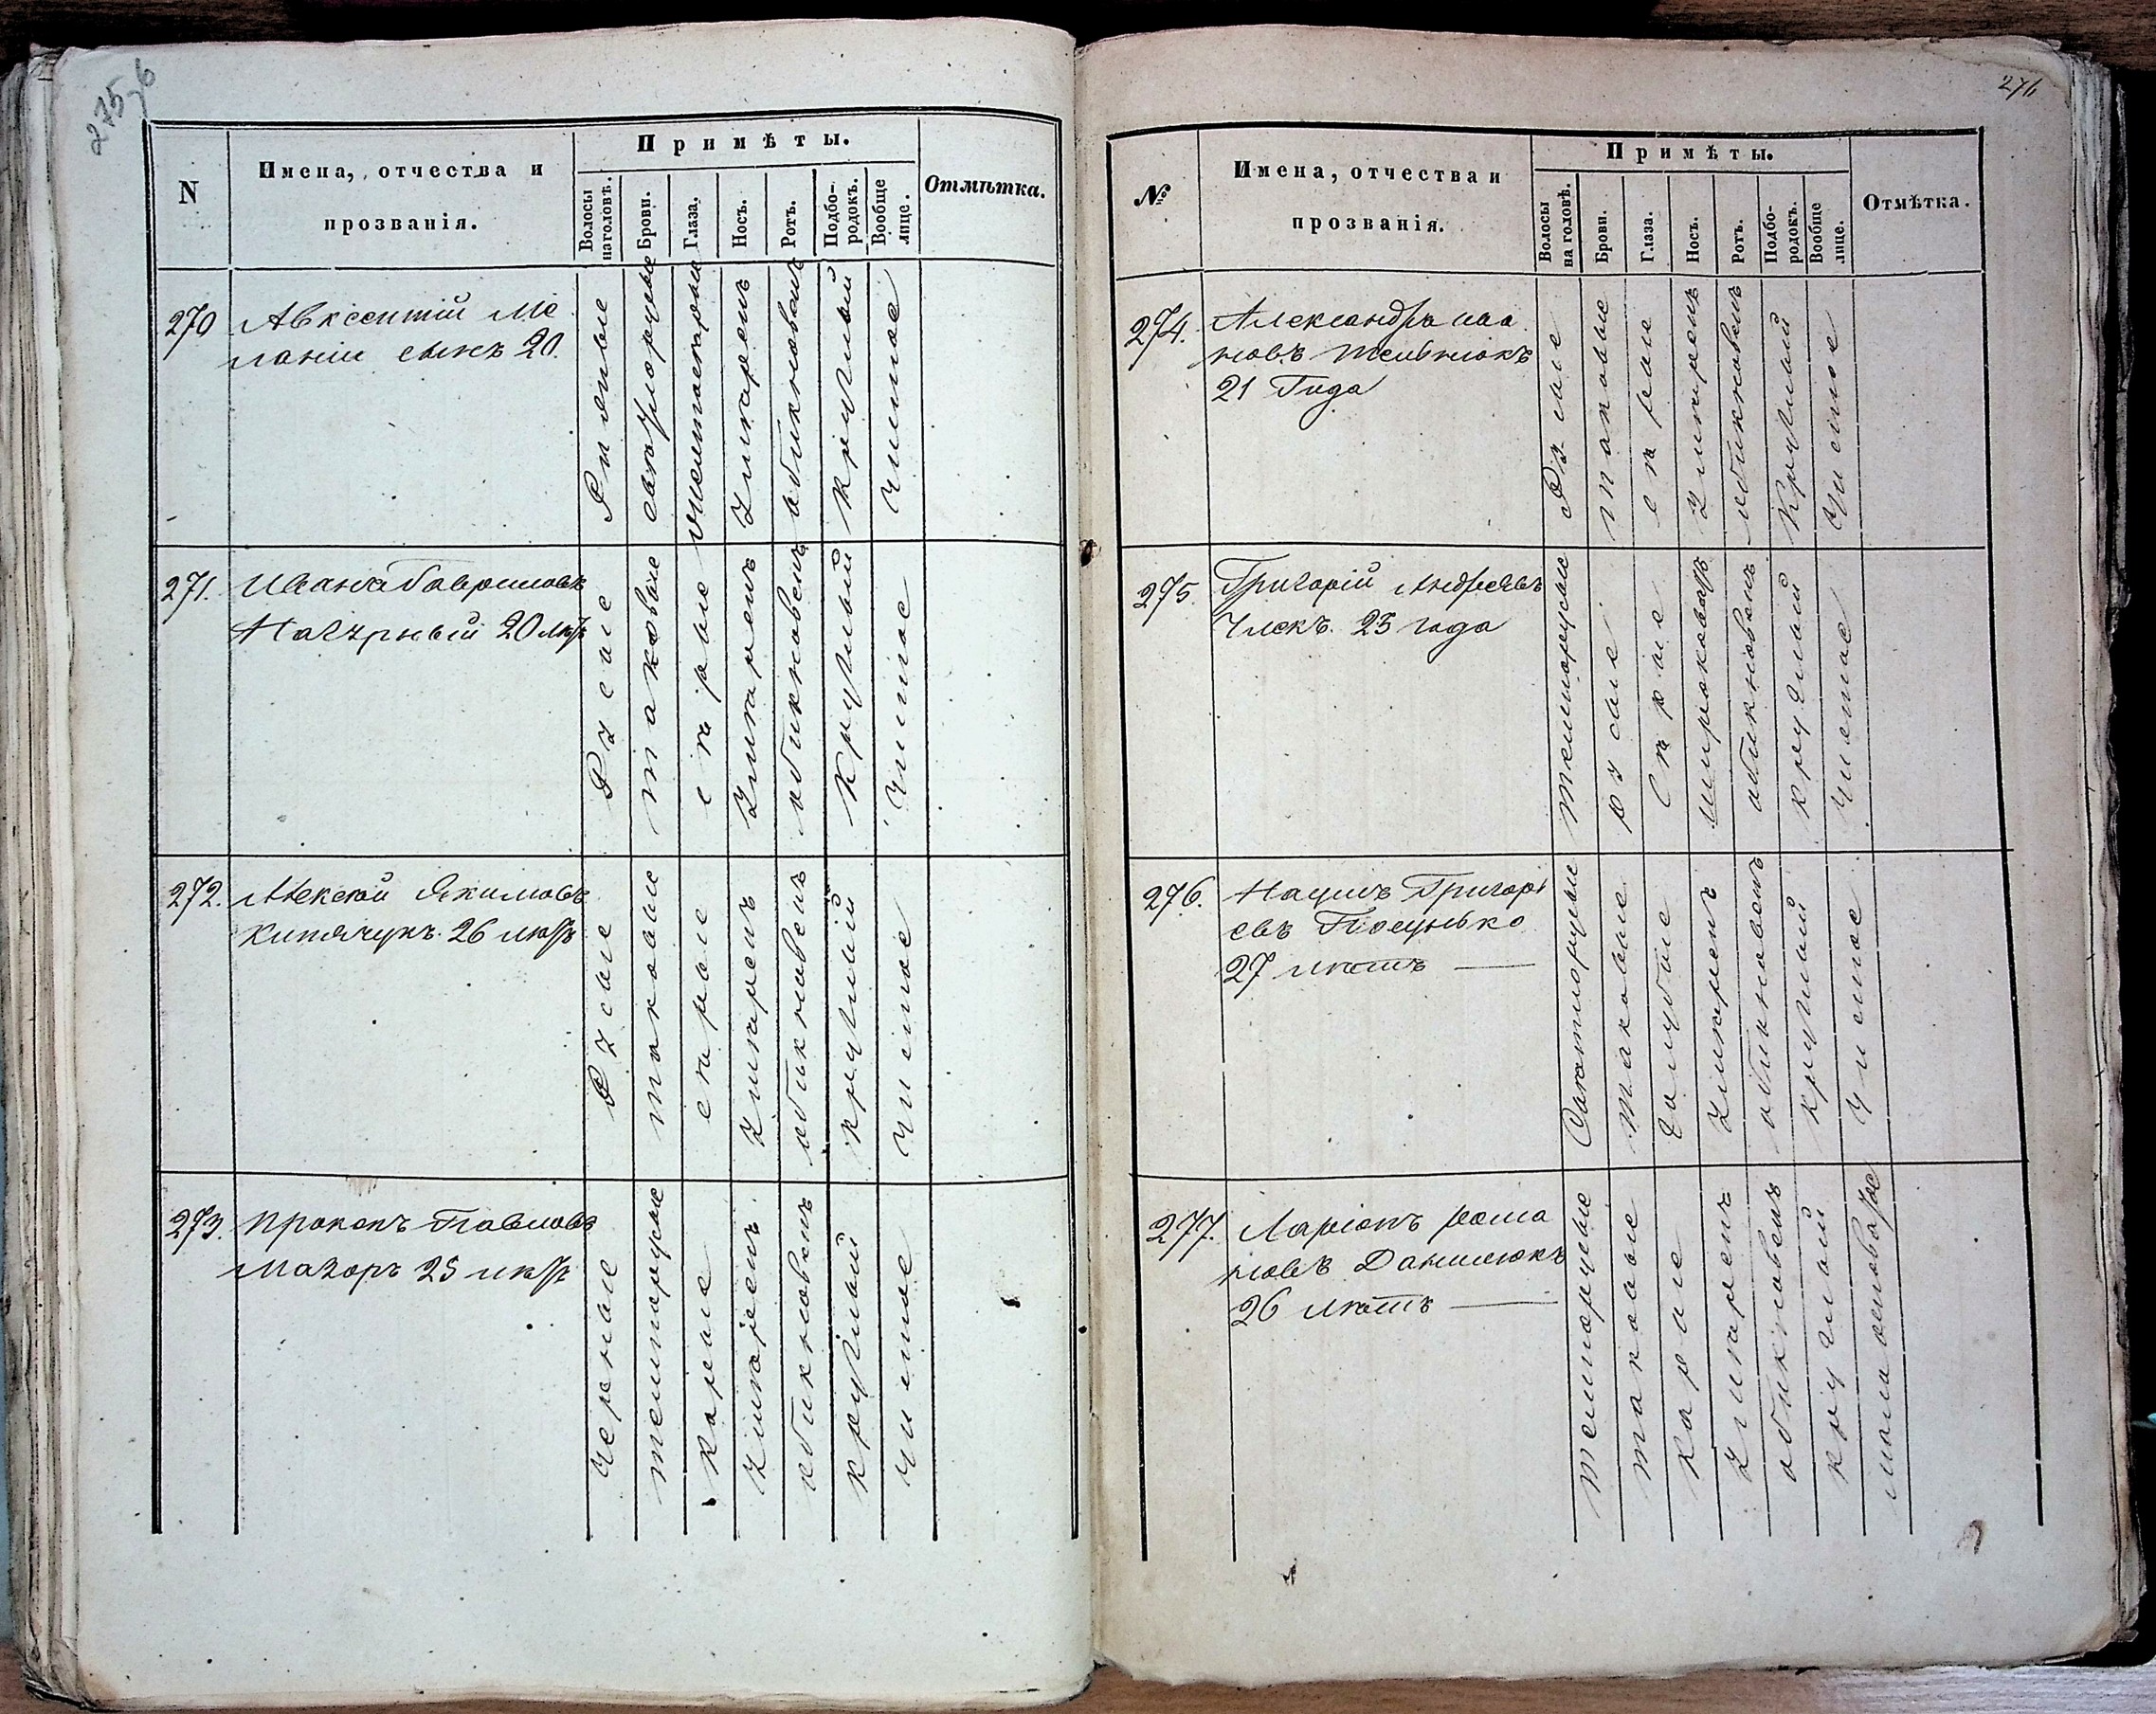 275б
N
Имена, отчества и
прозванія.
Примѣты.
Волосы
на головѣ.
Брови.
Глаза.
Носъ.
Ротъ.
Подбо-
родокъ.
Вообще
лице.
Отмѣтка.
270
Авксентій Ме
ланіи сынъ 20.
Русые
светлорусые
Умеренъ
обикновенъ
круглый
Чистое
271.
Иванъ Гавриловъ
20 лѣтъ
Русые
таковые
серые
Умеренъ
обикновенъ
круглый
Чистое
272.
Алексей Якимовъ
26 лѣтъ
Русые
таковые
серые
Умеренъ
обикновенъ
круглый
Чистое
273.
Прокопъ Павловъ
Мазоръ 25 лѣтъ
Черные
темнорусые
Карые
Умеренъ
обикновенъ
круглый
Чистое
276
№
Имена, отчества и
прозванія.
Примѣты.
Волосы
на головѣ.
Брови.
Глаза.
Носъ.
Ротъ.
Подбо-
родокъ.
Вообще
лице.
Отмѣтка.
274.
Александръ
21 Года
Русые
таковые
серые
Умеренъ
обикновенъ
Круглый
Чистое
275.
Григорій Андреевъ
23 года
Темнорусые
русые
Серые
широковатъ
обикновенъ
круглый
Чистое
276.
Нацимъ Григорі
евъ
27 лѣтъ —
Светлорусые
таковые
Голубые
Умеренъ
обикновенъ
круглый
Чистое
277.
Ларіонъ Рома
новъ Данилюкъ
26 лѣтъ —
темнорусые
таковые
Карые
Умеренъ
обикновенъ
круглый
мало осповатое